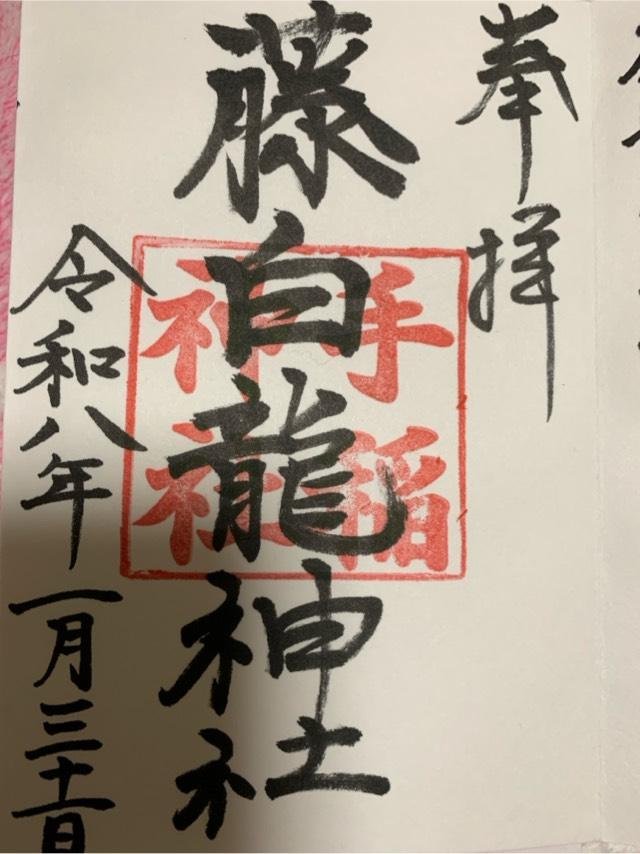 奉拝
藤白龍神社
手稲
神社
令和八年一月三十一日